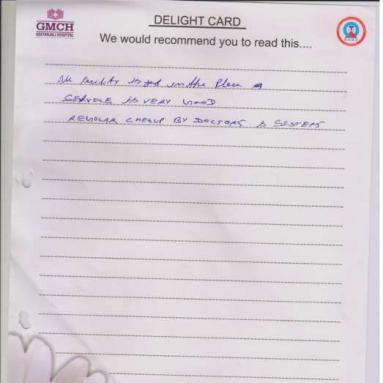 GMCH
GEETANJALI HOSPITAL
DELIGHT CARD
We would recommend you to read this....
All facility is good in the place &
SERVICE IS VERY GOOD
REGULAR CHEKUP BY DOCTORS & SISTERS